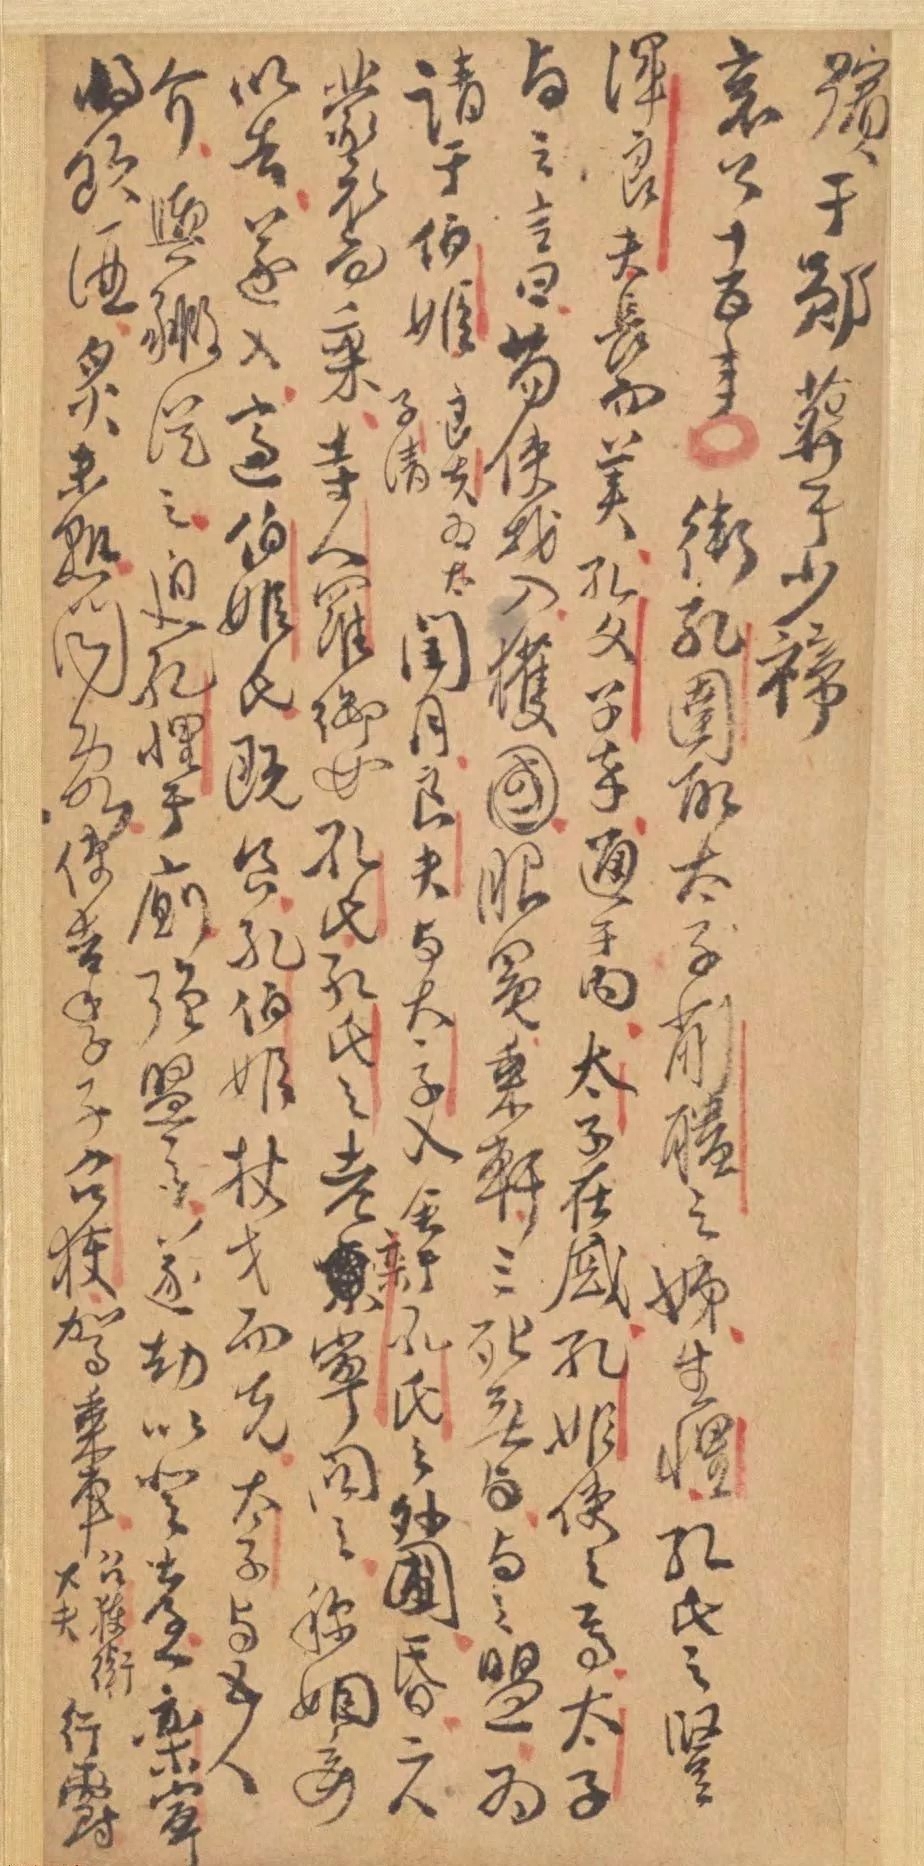 殯于鄖葬于少禘
哀公十五年 衛孔圉取太子蒯聵之姊生悝孔氏之豎
渾良夫長而美孔文子卒通于內太子在戚孔姬使之焉太子
與之言曰苟使我入獲國服冕乘軒三死無與與之盟為
請于伯姬 良夫為太子請 閏月良夫與太子入舍孔氏之外圃昏二人
蒙衣而乘寺人羅御如孔氏孔氏之老欒寧問之稱姻妾
以告遂入適伯姬氏既食孔伯姬杖戈而先太子與五人
介輿豭從之迫孔悝于廁強盟之遂劫以登臺欒寧
將飲酒炙未熟聞亂使告季子召獲駕乘車 召獲衛大夫 行爵